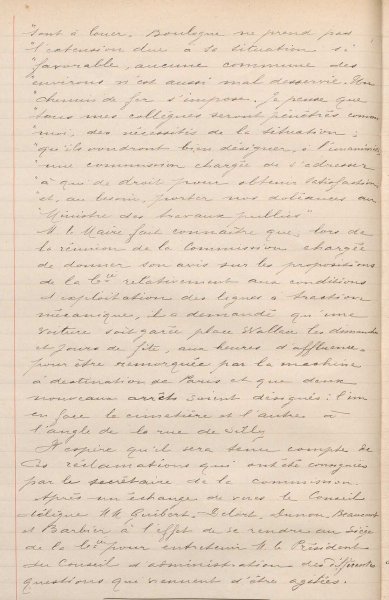 "sont à louer. Boulogne ne prend pas
"l'extension due à sa situation si
"favorable, aucune commune des
"environs n'est aussi mal desservie. Un
"chemin de fer s'impose. Je pense que
"tous mes collègues seront pénétrés comme
"moi, des nécessités de la situation;
"qu'ils voudront bien désigner, à l'unanimité
"une commission chargée de s'adresser
"à qui de droit pour obtenir satisfaction
"et, au besoin, porter nos doléances au
"Ministre des travaux publics"
M. le Maire fait connaître que, lors de
la réunion de la Commission chargée
de donner son avis sur les propositions
de la Cie relativement aux conditions
d'exploitation des lignes à traction
mécanique, il a demandé qu'une
voiture soit garée place Wallace les dimanches
et jours de fête, aux heures d'affluence
pour être remorquée par la machine
à destination de Paris et que deux
nouveaux arrêts soient désignés: l'un
en face le cimetière et l'autre à
l'angle de la rue de Silly
Il espère qu'il sera tenu compte de
ces réclamations qui ont été consignées
par le secrétaire de la commission.
Après un échange de vues le Conseil
délègue MM Guibert, Beaucourt
et Barbier à l'effet de se rendre au siège
de la Cie pour entretenir M. le Président
du Conseil d'administration des différentes
questions qui viennent d'être agitées.